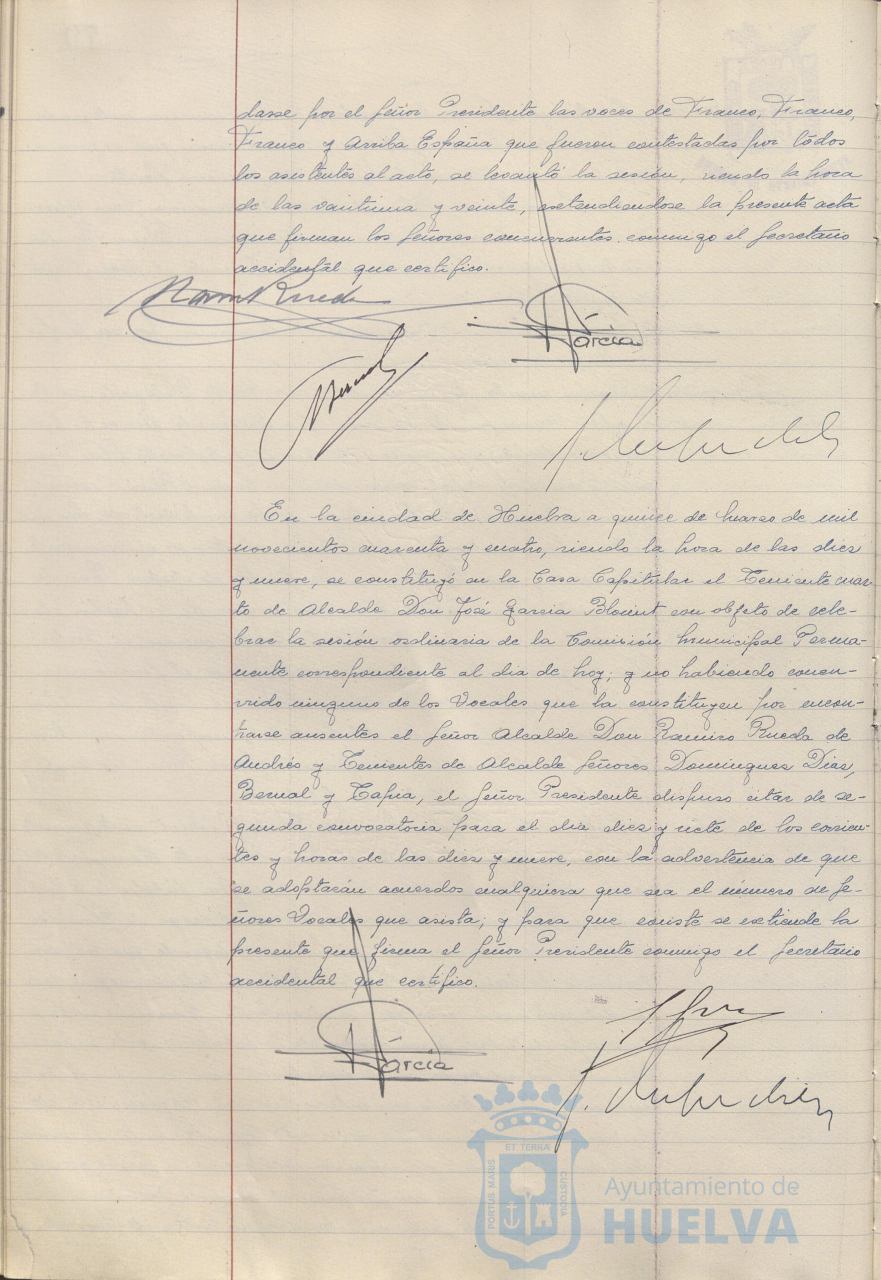 darse por el Señor Presidente las voces de Franco, Franco,
Franco y Arriba España que fueron contestadas por todos
los asistentes al acto, se levantó la sesión, siendo la hora
de las veintiuna y veinte, extendiendose la presente acta
que firman los Señores concurrentes conmigo el Secretario
accidental que certifico.
Ramiro Rueda
García
Bernal
En la ciudad de Huelva a quince de Marzo de mil
novecientos cuarenta y cuatro, siendo la hora de las diez
y nueve, se constituyó en la Casa Capitular el Teniente cuar-
to de Alcalde Don José Garcia Blount con objeto de cele-
brar la sesión ordinaria de la Comisión Municipal Perma-
nente correspondiente al dia de hoy; y no habiendo concu-
rrido ninguno de los Vocales que la constituyen por encon-
trarse ausentes el Señor Alcalde Don Ramiro Rueda de
Andrés y Tenientes de Alcalde Señores Dominguez Diaz,
Bernal y Tapia, el Señor Presidente dispuso citar de se-
gunda convocatoria para el dia diez y siete de los corrien-
tes y horas de las diez y nueve, con la advertencia de que
se adoptarán acuerdos cualquiera que sea el número de Se-
ñores Vocales que asista; y para que conste se extiende la
presente que firma el Señor Presidente conmigo el Secretario
accidental que certifico.
García
PORTUS MARIS
ET TERRA
CUSTODIA
Ayuntamiento de
HUELVA